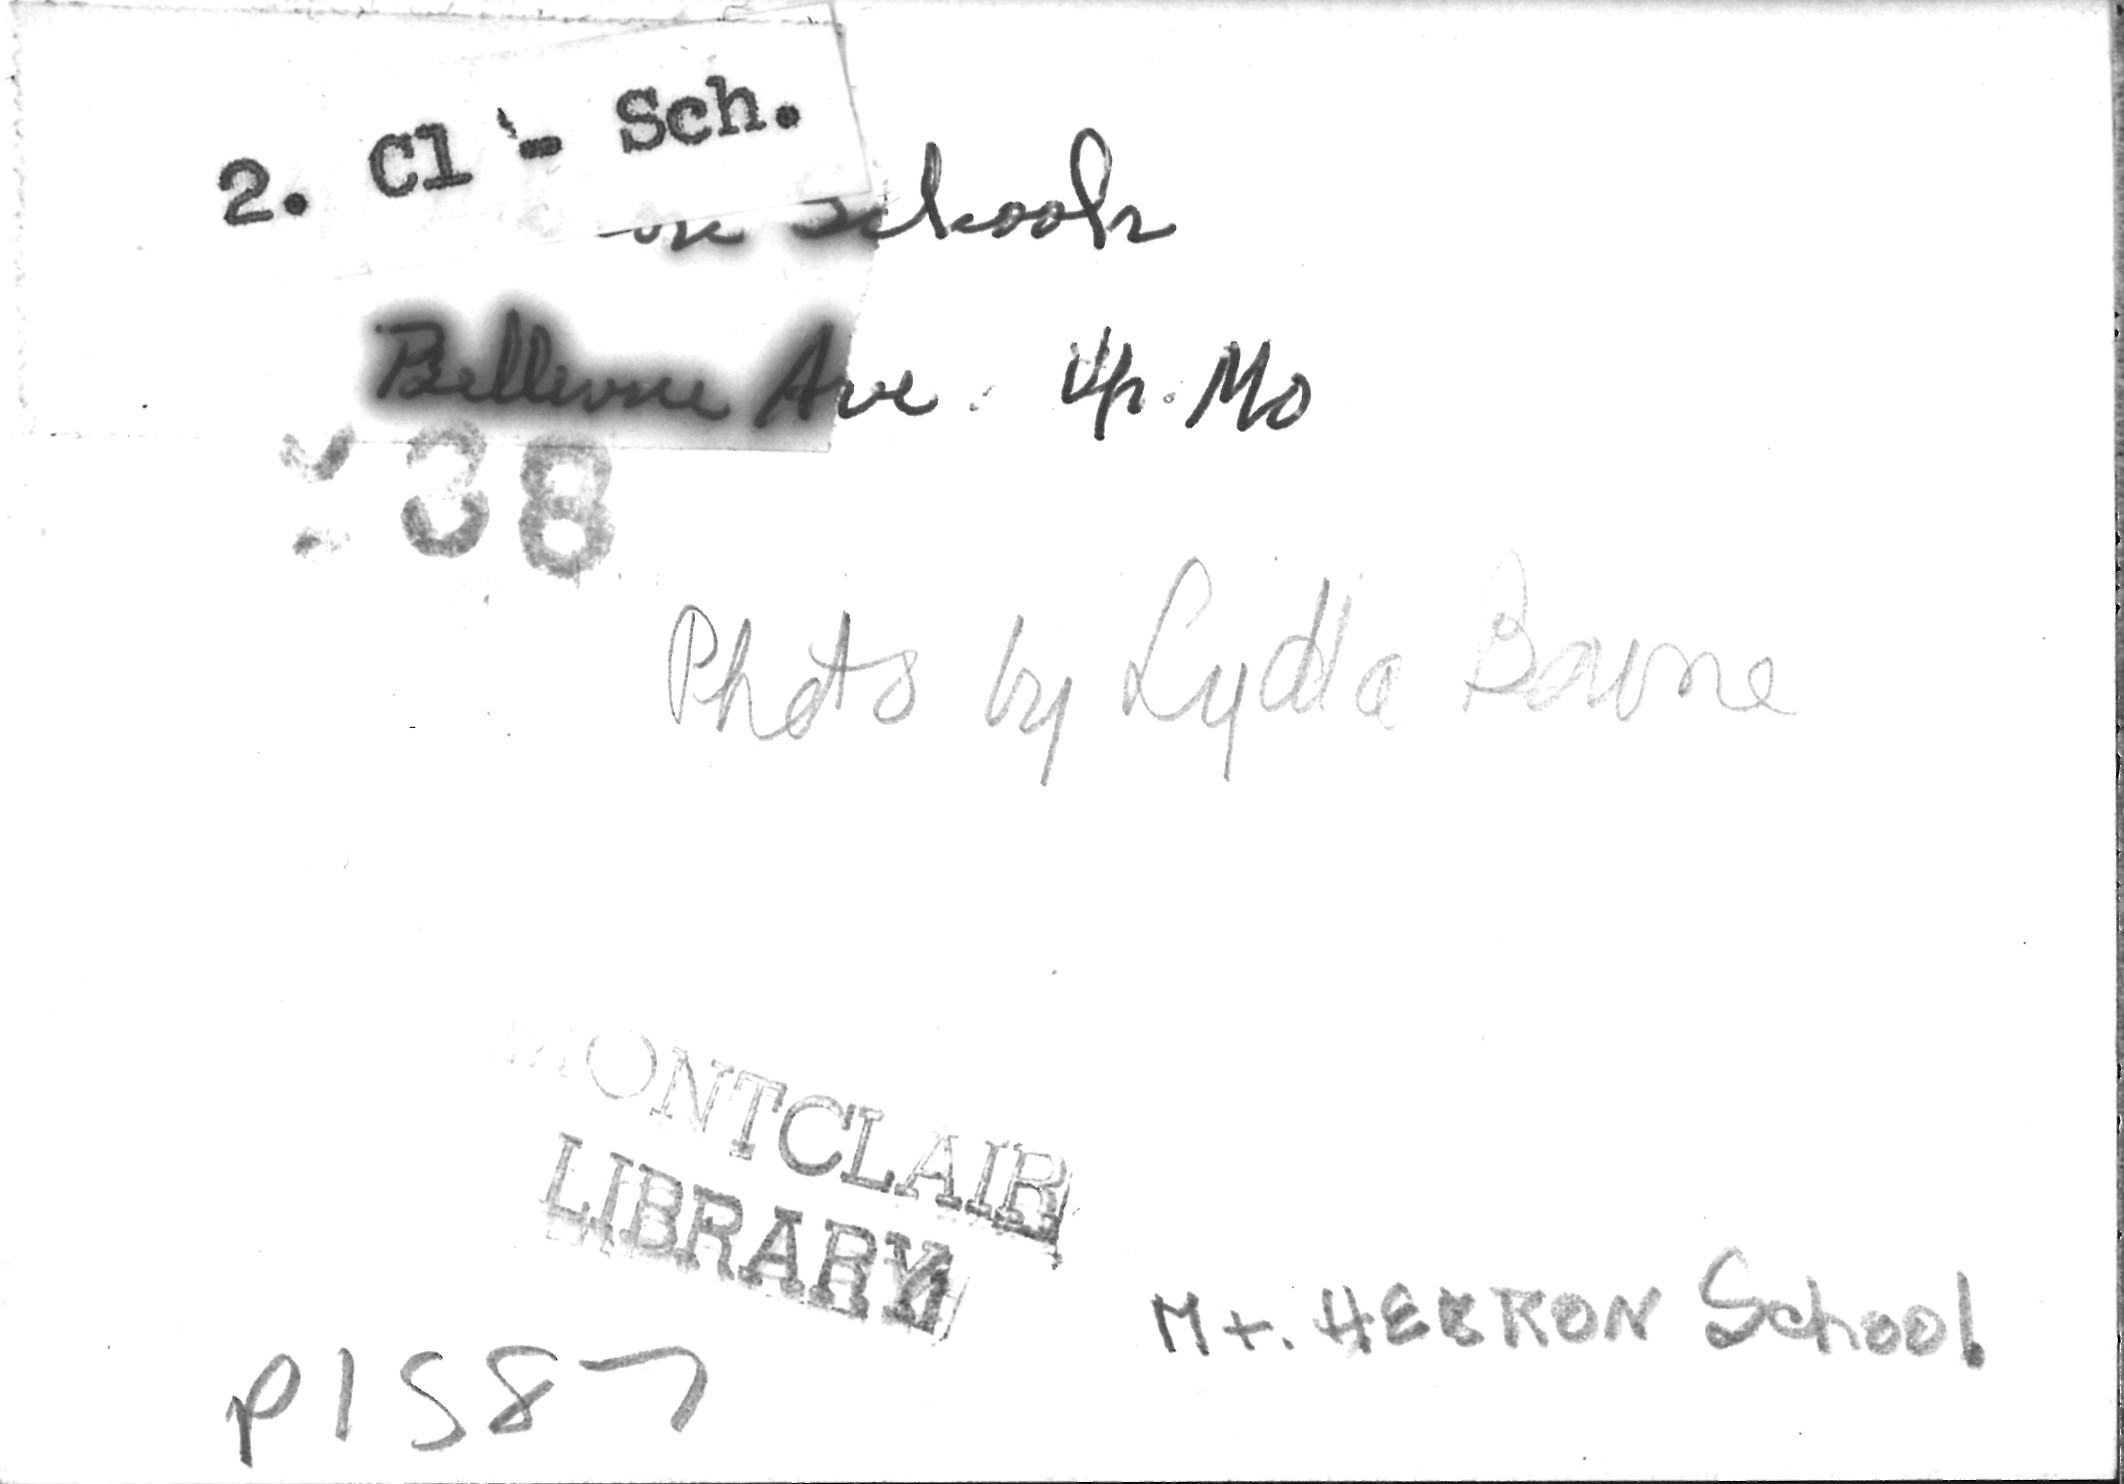 2. Cl - Sch.
School
Bellevue Ave. Up. Mo
38
Photo by Lydia Bowne
MONTCLAIR
LIBRARY
Mt. HEBRON School
P1587